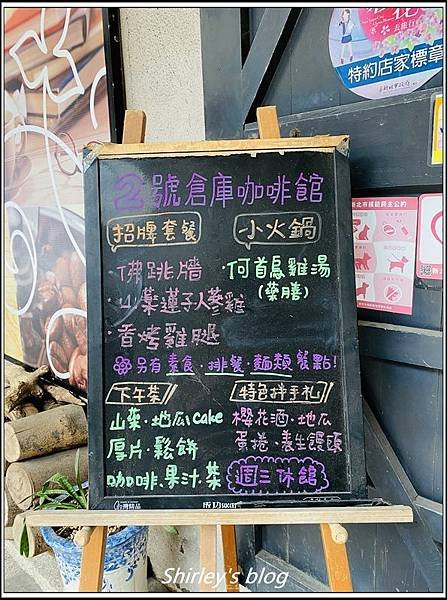 2號倉庫咖啡館
招牌套餐
小火鍋
·佛跳牆
·何首烏雞湯
(藥膳)
·山藥蓮子人蔘雞
·香烤雞腿
另有素食·排餐·麵類餐點!
下午茶
特色拌手礼
山藥·地瓜cake
櫻花酒·地瓜
厚片·鬆餅
蛋捲·養生饅頭
咖啡.果汁.茶
週三休館
特約店家標章
Shirley's blog